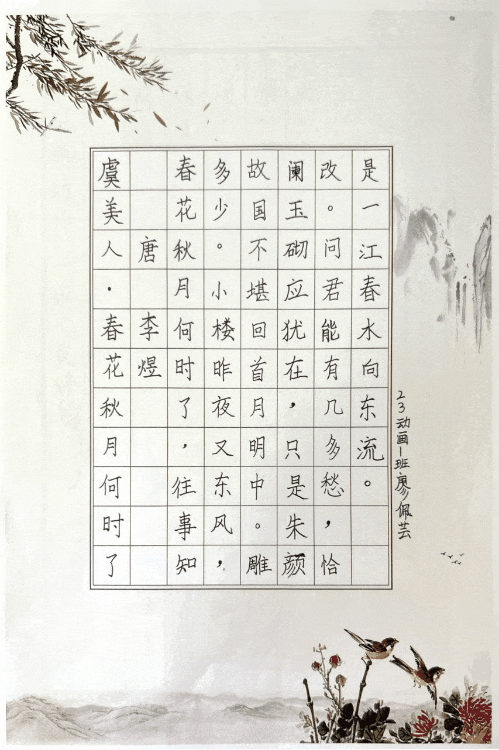 虞美人·春花秋月何时了
唐 李煜
春花秋月何时了，往事知
多少。小楼昨夜又东风，
故国不堪回首月明中。雕
阑玉砌应犹在，只是朱颜
改。问君能有几多愁，恰
是一江春水向东流。
23动画一班廖佩芸